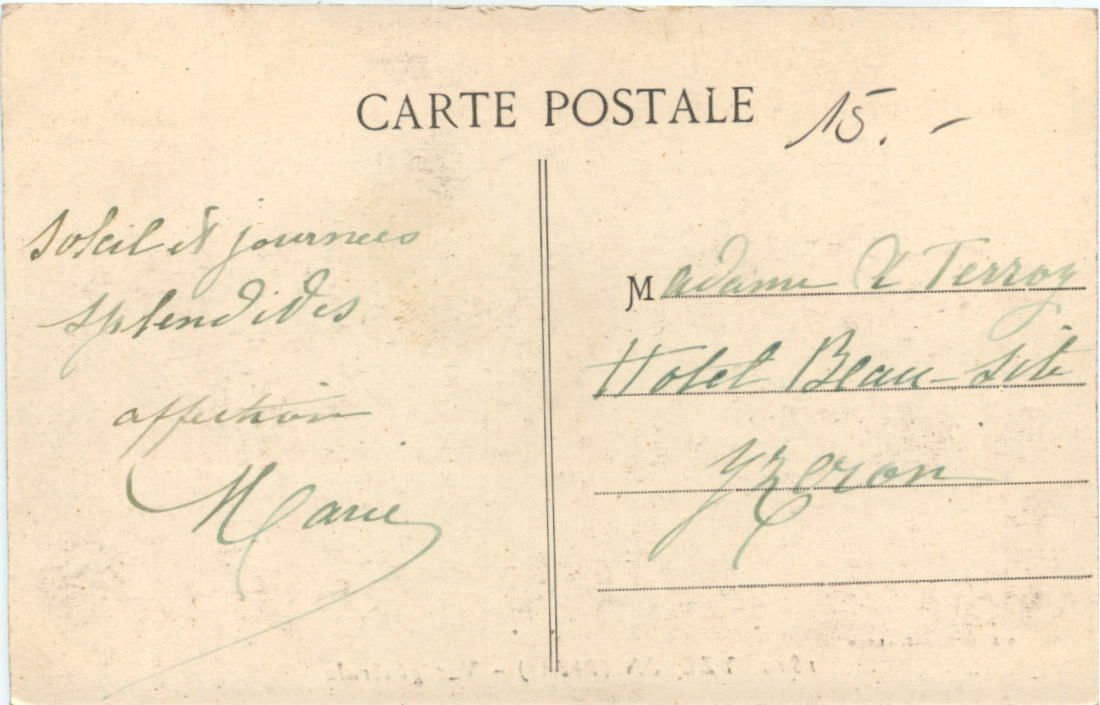 CARTE POSTALE
15.-
soleil et journees
splendides
affection
Marie
Madame Terroy
Hotel Beau-Site
Yzeron